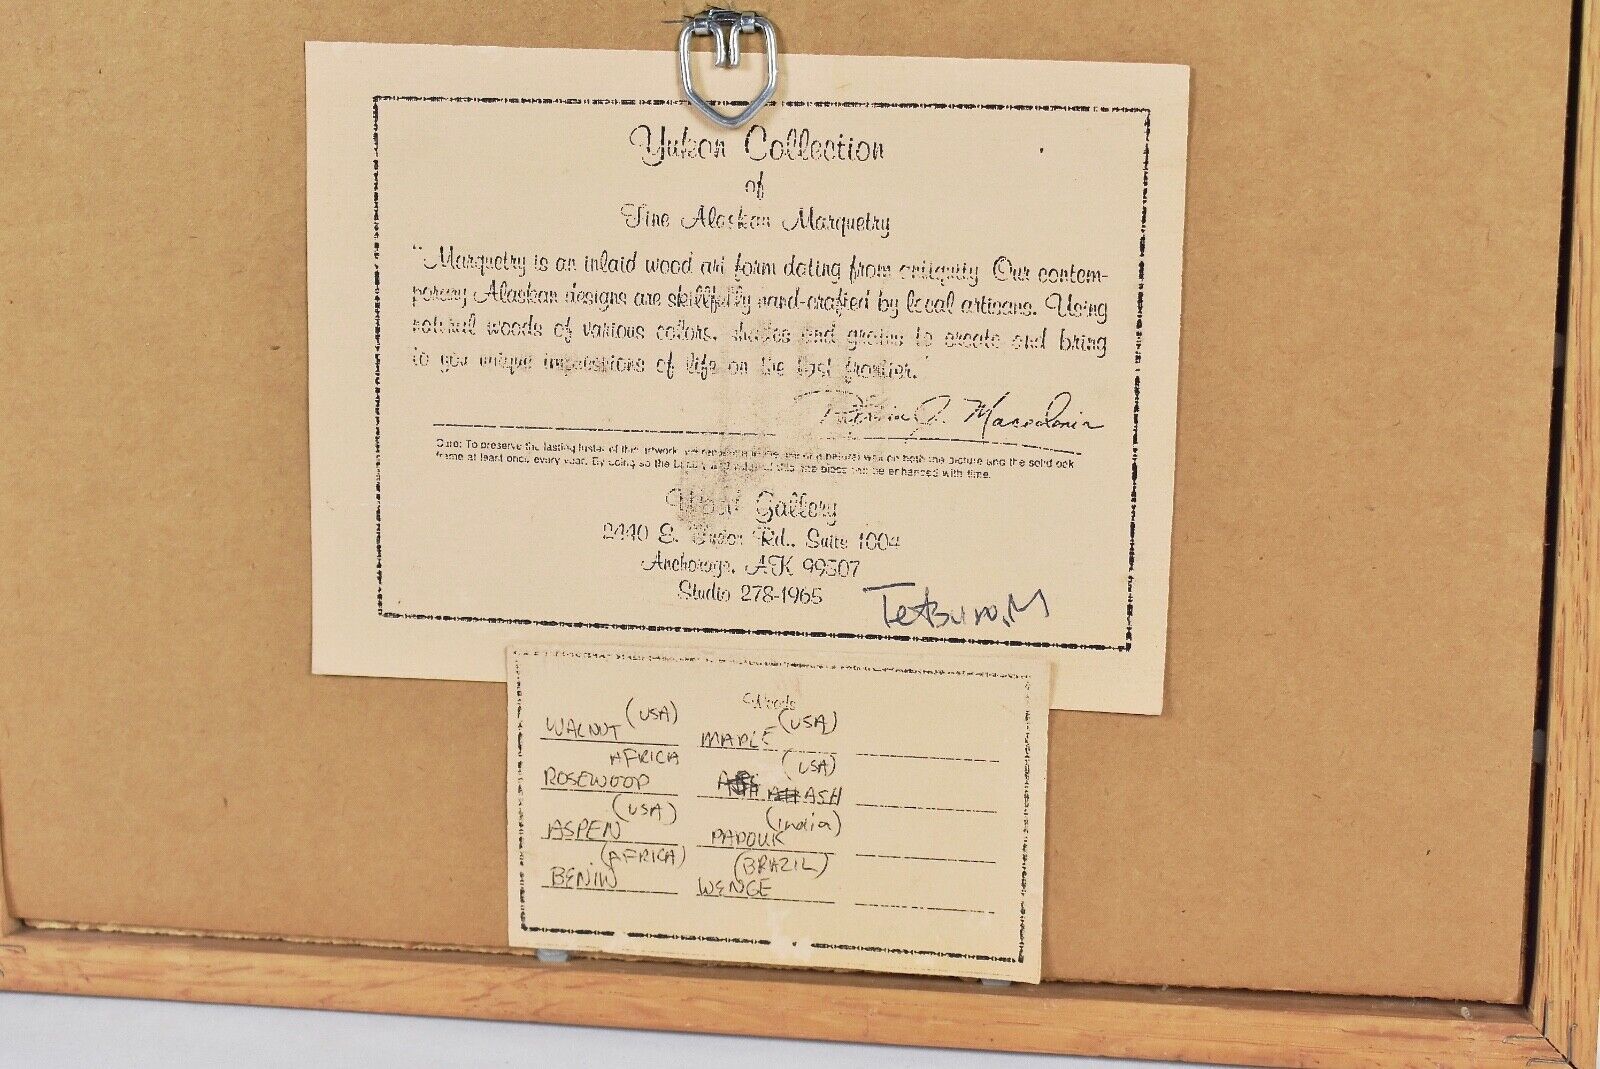 Yukon Collection
of
Fine Alaskan Marquetry
"Marquetry is an inlaid wood art form dating from antiquity Our contem-
porary Alaskan designs are skillfully hand-crafted by local artisans. Using
natural woods of various colors, shades and grains to create and bring
to you unique impressions of life on the last frontier."
Patricia J. Macedonia
Care: To preserve the lasting luster of this artwork, we recommend wax on both the picture and the solid oak
frame at least once every year. By doing so the beauty and value of this fine piece can be enhanced with time.
Gallery
2440 E. Tudor Rd., Suite 1004
Anchorage, AK 99507
Studio 278-1965
Tetsuro.M
Woods
WALNUT (USA) MAPLE (USA)
AFRICA (USA)
ROSEWOOD ASH
(USA) (India)
ASPEN PADOUK
(AFRICA) (BRAZIL)
BENIN WENGE